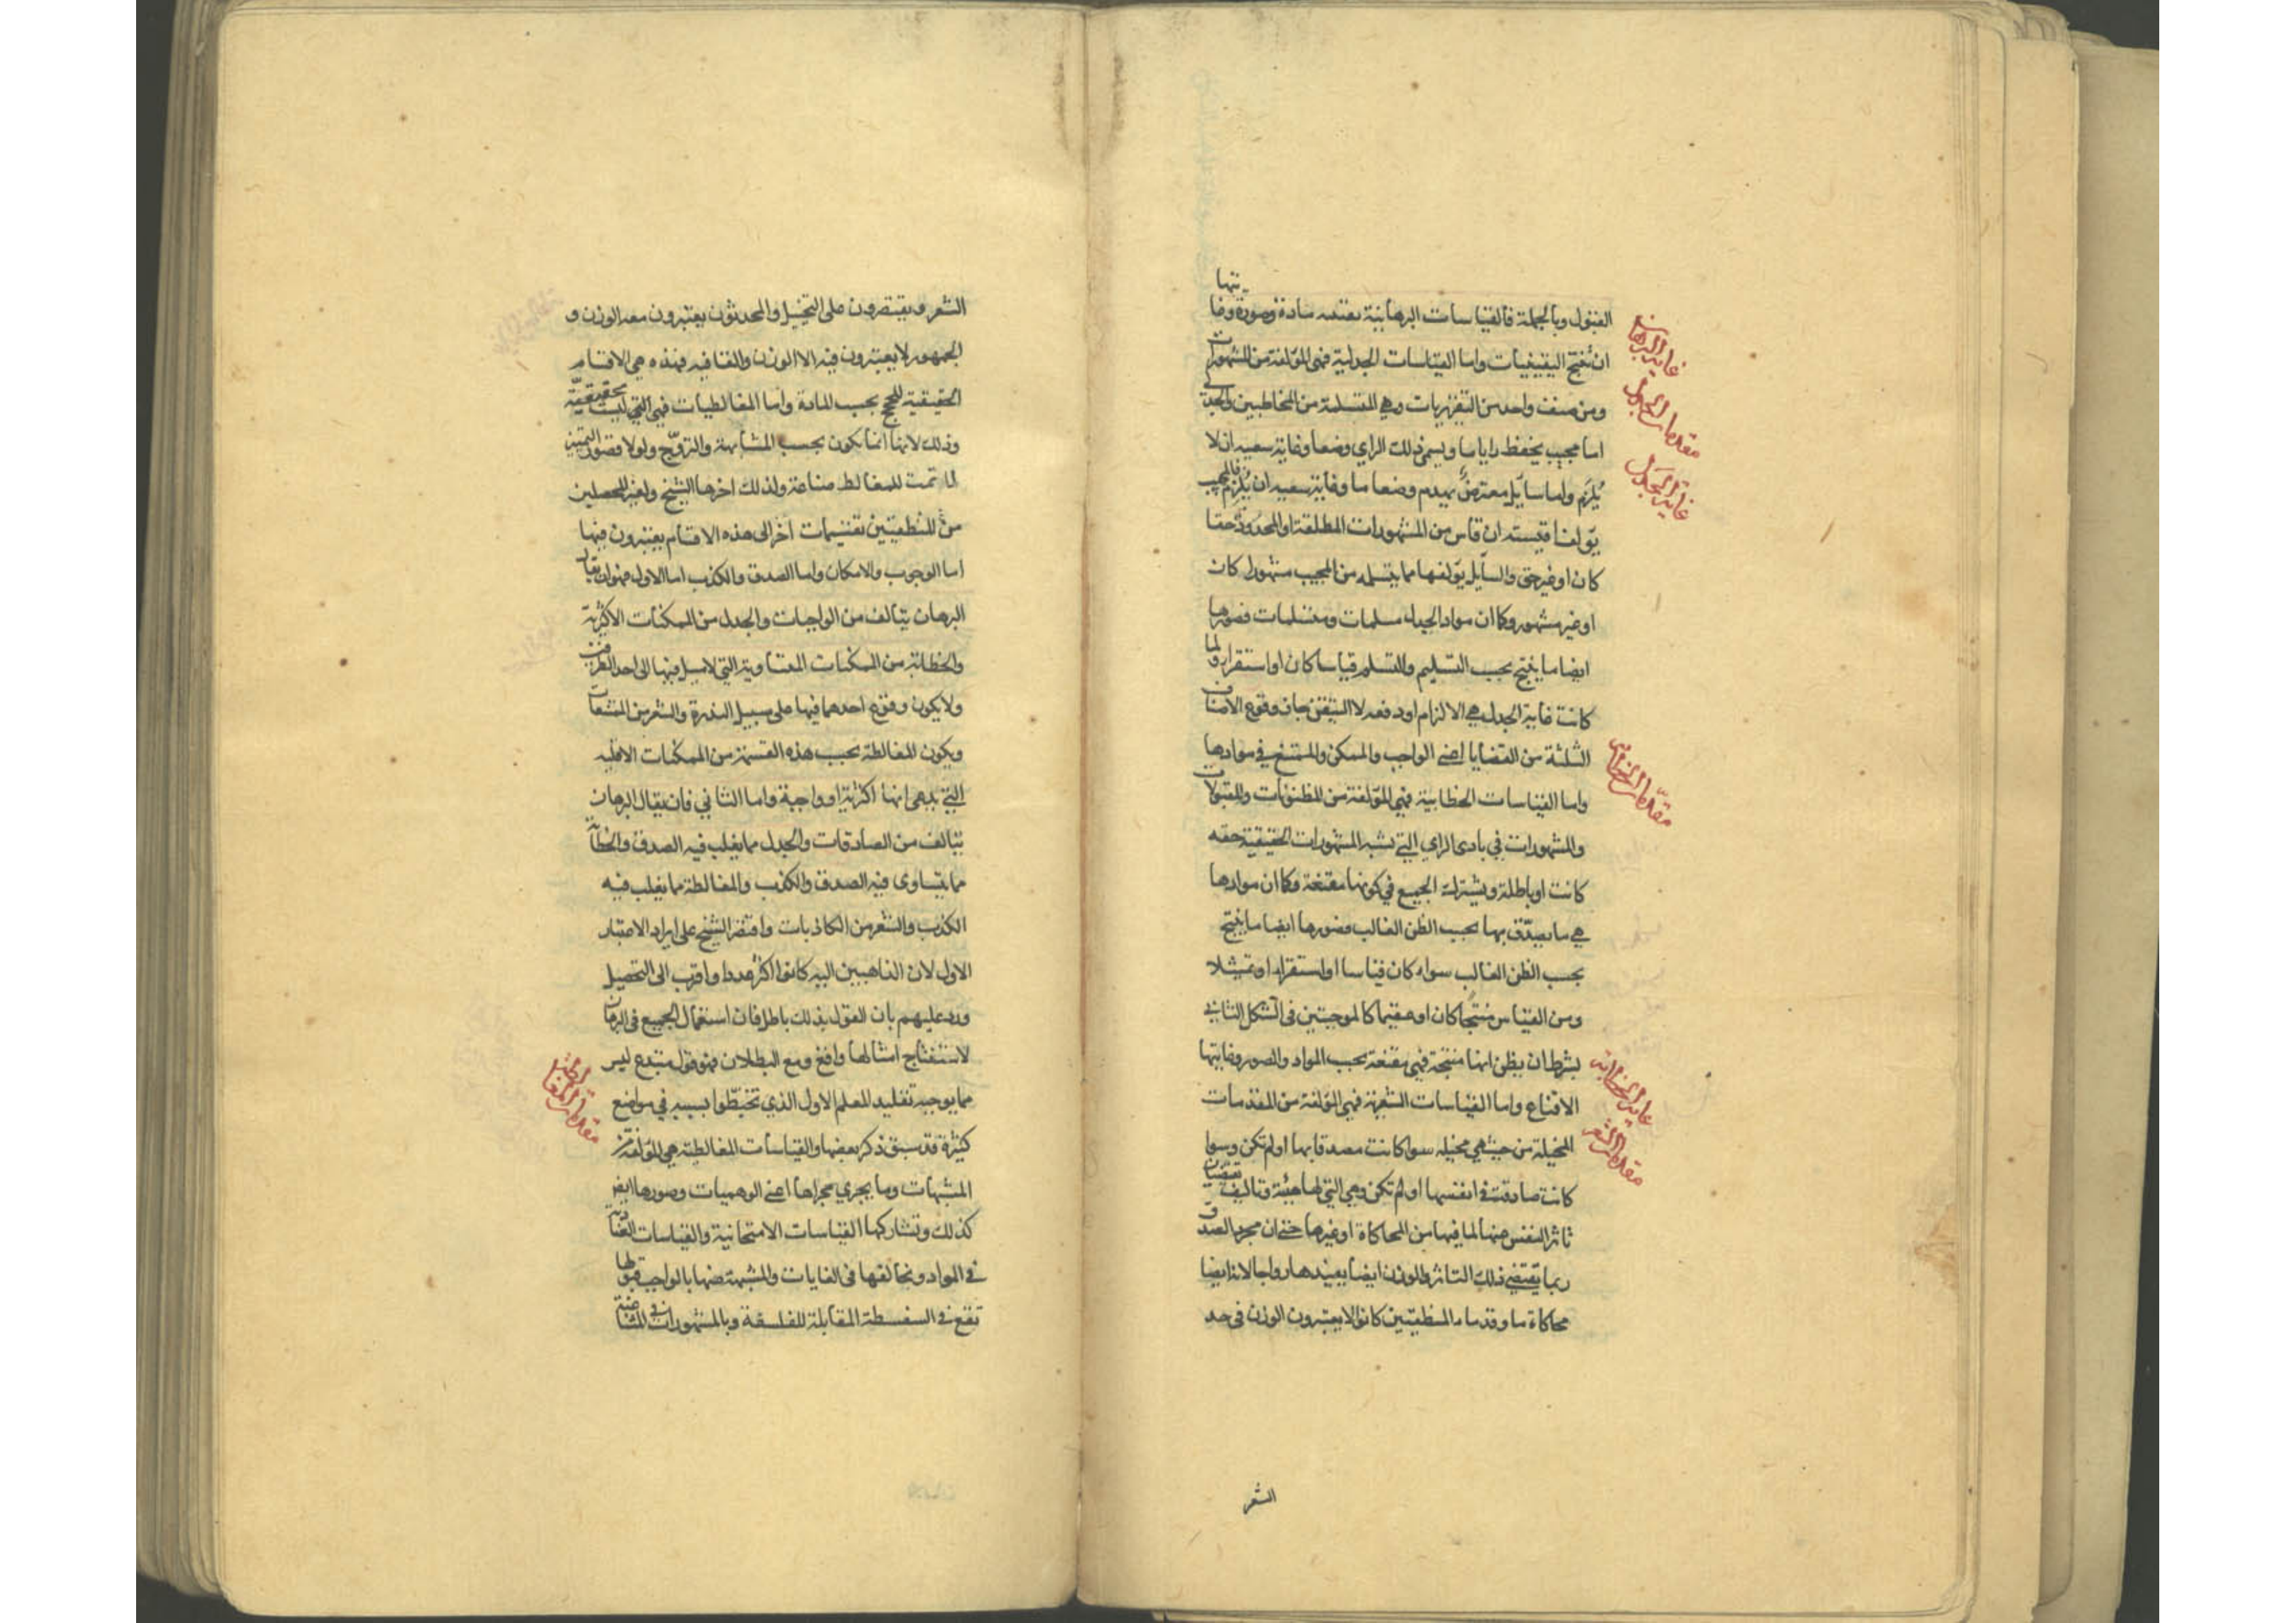 القبول وبالجملة فالقياسات البرهانية يقينية مادة وصورة وغايتها
ان تنتج اليقينيات واما القياسات الجدلية فهي المؤلفة من المشهورات
ومن صنف واحد من التقريريات وهي المتسلمة من المخاطبين والجدلي
اما مجيب يحفظ رايا ما ويسمى ذلك الراي وضعا وغاية سعيه ان لا
يُلزَم واما سايل معترض يهدم وضعا ما وغاية سعيه ان يُلزِم فالمجيب
يؤلف اقيسته ان قاس من المشهورات المطلقة او المحدودة حقا
كان او غير حق والسايل يؤلفها مما يتسلمه من المجيب مشهورا كان
او غير مشهور وكما ان مواد الجدل مسلمات ومتسلمات فصورها
ايضا ما ينتج بحسب التسليم والتسلم قياسا كان او استقراء ولما
كانت غاية الجدل هي الالزام او دفعه لا التيقن جاز وقوع الاصناف
الثلثة من القضايا اعني الواجب والممكن والممتنع في موادها
واما القياسات الخطابية فهي المؤلفة من المظنونات والمقبولات
والمشهورات في بادى الراي التي تشبه المشهورات الحقيقية حقه
كانت او باطلة ويشترك الجميع في كونها مقنعة وكما ان موادها
هي ما يصدّق بها بحسب الظن الغالب فصورها ايضا ما ينتج
بحسب الظن الغالب سواء كان قياسا او استقراء او تمثيلا
ومن القياس منتجا كان او عقيما كالموجبتين في الشكل الثاني
بشرط ان يظن انها منتجة فهي مقنعة بحسب المواد والصور وغايتها
الاقناع واما القياسات الشعرية فهي المؤلفة من المقدمات
المخيلة من حيث هي مخيله سوا كانت مصدقا بها او لم تكن وسوا
كانت صادقة في انفسها او لم تكن وهي التي لها هيئة وتاليف تقتضيان
تاثر النفس عنها لما فيها من المحاكاة او غيرها حتى ان مجرد الصدق
ربما يقتضي ذلك التاثر والوزن ايضا يفيدها رواجا لانه ايضا
محاكاة ما وقدماء المنطقيين كانوا لا يعتبرون الوزن في حد
الشعر
غاية البرهان
مقدمات الجدل
غاية الجدل
مقدمات الخطابة
غاية الخطابة
مقدمات الشعر
الشعر ويقتصرون على التخييل والمحدثون يعتبرون معه الوزن و
الجمهور لا يعتبرون فيه الا الوزن والقافيه فهذه هي الاقسام
الحقيقية للحجج بحسب المادة واما المغالطيات فهي التي ليست بحقيقية
وذلك لانها انما تكون بحسب المشابهة والتروّج ولولا قصور التمييز
لما تمت للمغالط صناعة ولذلك اخرها الشيخ ولغير المحصلين
من المنطقيين تقسيمات اخر الى هذه الاقسام يعتبرون فيها
اما الوجوب والامكان واما الصدق والكذب اما الاول فهو ان يقال
البرهان يتالف من الواجبات والجدل من الممكنات الاكثرية
والخطابة من الممكنات المتساوية التي لا ميل فيها الى احد الطرفين
ولا يكون وقوع احدهما فيها على سبيل الندرة والشعر من الممتنعات
ويكون المغالطة بحسب هذه القسمة من الممكنات الاقليه
التي يدعى انها اكثرية او واجبة واما الثاني فان يقال البرهان
يتالف من الصادقات والجدل مما يغلب فيه الصدق والخطابة
مما يتساوى فيه الصدق والكذب والمغالطة مما يغلب فيه
الكذب والشعر من الكاذبات واقتصر الشيخ على ايراد الاعتبار
الاول لان الذاهبين اليه كانوا اكثر عددا واقرب الى التحصيل
ورد عليهم بان القول بذلك باطل فان استعمال الجميع في البرهان
لاستنتاج امثالها واقع ومع البطلان فهو قول مبتدع ليس
مما يوجبه تقليد المعلم الاول الذي تخبّطوا بسببه في مواضع
كثيرة قد سبق ذكر بعضها والقياسات المغالطية هي المؤلفة من
المشبهات وما يجري مجراها اعني الوهميات وصورها ايضا
كذلك وتشاركها القياسات الامتحانية والقياسات العنادية
في المواد وتخالفها في الغايات والمشبهة منها بالواجب قبولها
تقع في السفسطة المقابلة للفلسفة وبالمشهورات في المشاغبة
مقدمات المغالطة